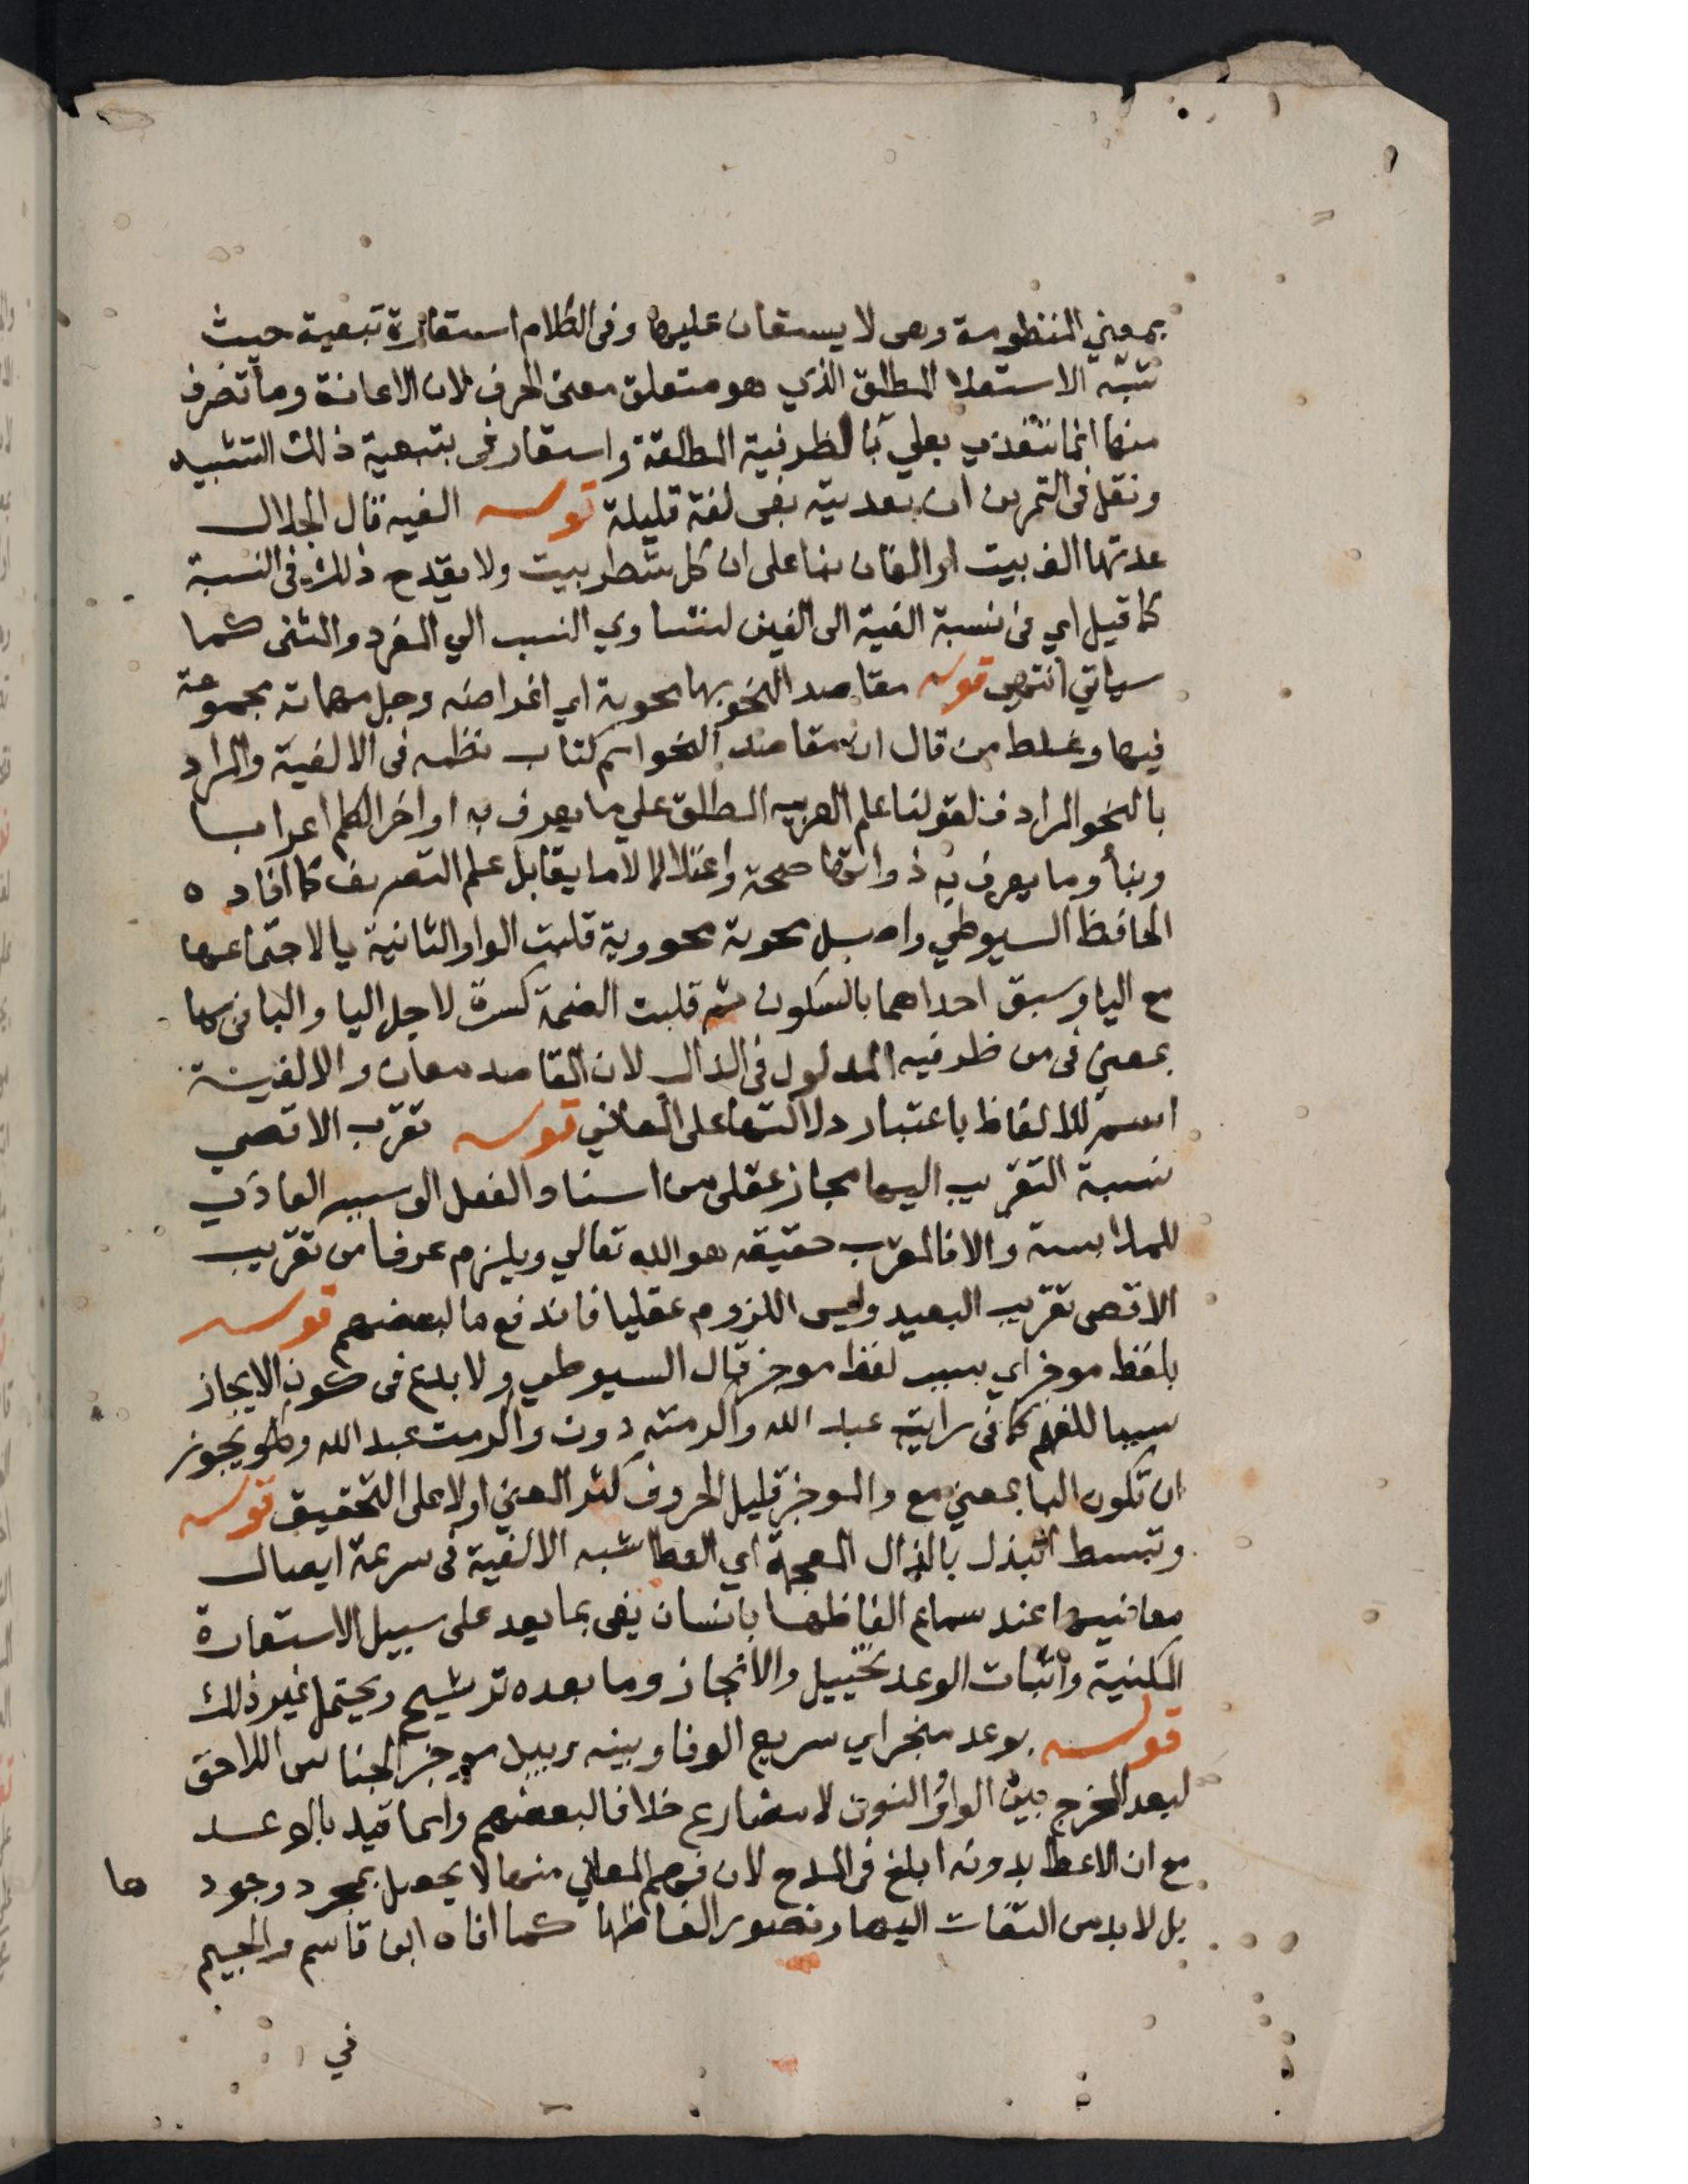 بمعني المنظومة وهي لا يستعان عليها وفي الكلام استعارة تبعية حيث
شبه الاستعلا المطلق الذي هو متعلق معنى الحرف لان الاعانة وما تصرف
منها انما تتعدي بعلي بالظرفية المطلقة واستعار في بتبعية ذلك التشبيه
ونقل في التمرين ان تعديته بفي لغة قليلة قوله الفيه قال الجلال
عدتها الف بيت او الفان بنا على ان كل شطر بيت ولا يقدح ذلك في النسبة
كما قيل اي في نسبة الفية الى الفين لتساوي النسب الي المفرد والمثنى كما
سياتي انتهي قوله مقاصد النحو بها محوية اي اغراضه وجل مهماته مجموعة
فيها وغلط من قال ان مقاصد النحو اسم كتاب نظمه في الالفية والمراد
بالنحو المرادف لقولنا علم العربيه المطلق علي ما يعرف به اواخر الكلم اعرابا
وبنأ وما يعرف به ذواتها صحة واعتلالا لا ما يقابل علم التصريف كما افاده
الحافظ السيوطي واصل محوية محووية قلبت الواو الثانية يا لاجتماعها
مع اليا وسبق احداهما بالسكون ثم قلبت الضمة كسرة لاجل اليا والبا في بها
بمعني في من ظرفيه المدلول في الدال لان المقاصد معان والالفية
اسم للالفاظ باعتبار دلالتها على المعاني قوله تقرب الاقصي
نسبة التقريب اليها مجاز عقلى من اسناد الفعل الى سببه العادي
للملابسة والا فالمقرب حقيقه هو الله تعالي ويلزم عرفا من تقريب
الاقصى تقريب البعيد وليس اللزوم عقليا فاندفع ما لبعضهم قوله
بلفظ موجز اي بسبب لفظ موجز قال السيوطي ولا بدع في كون الايجاز
سببا للفهم كما في رايت عبد الله واكرمته دون واكرمت عبد الله ويجوز
ان تكون البا بمعني مع والموجز قليل الحروف كثر المعني اولا على التحقيق قوله
وتبسط البذل بالذال المعجمة اي العطا شبه الالفية في سرعة ايصال
معانيها عند سماع الفاظها بانسان يفي بما يعد على سبيل الاستعارة
المكنية واثبات الوعد تخييل والانجاز وما بعده ترشيح ويحتمل غير ذلك
قوله بوعد منجز اي سريع الوفا وبينه وبين موجز الجناس اللاحق
لبعد المخرج بين الواو والنون لا مضارع خلافا لبعضهم وانما قيد بالوعد
مع ان الاعطا بدونه ابلغ في المدح لان فهم المعاني منها لا يحصل بمجرد وجود ها
بل لا بد من التفات اليها وتصور الفاظها كما افاه ابن قاسم والجيم
في